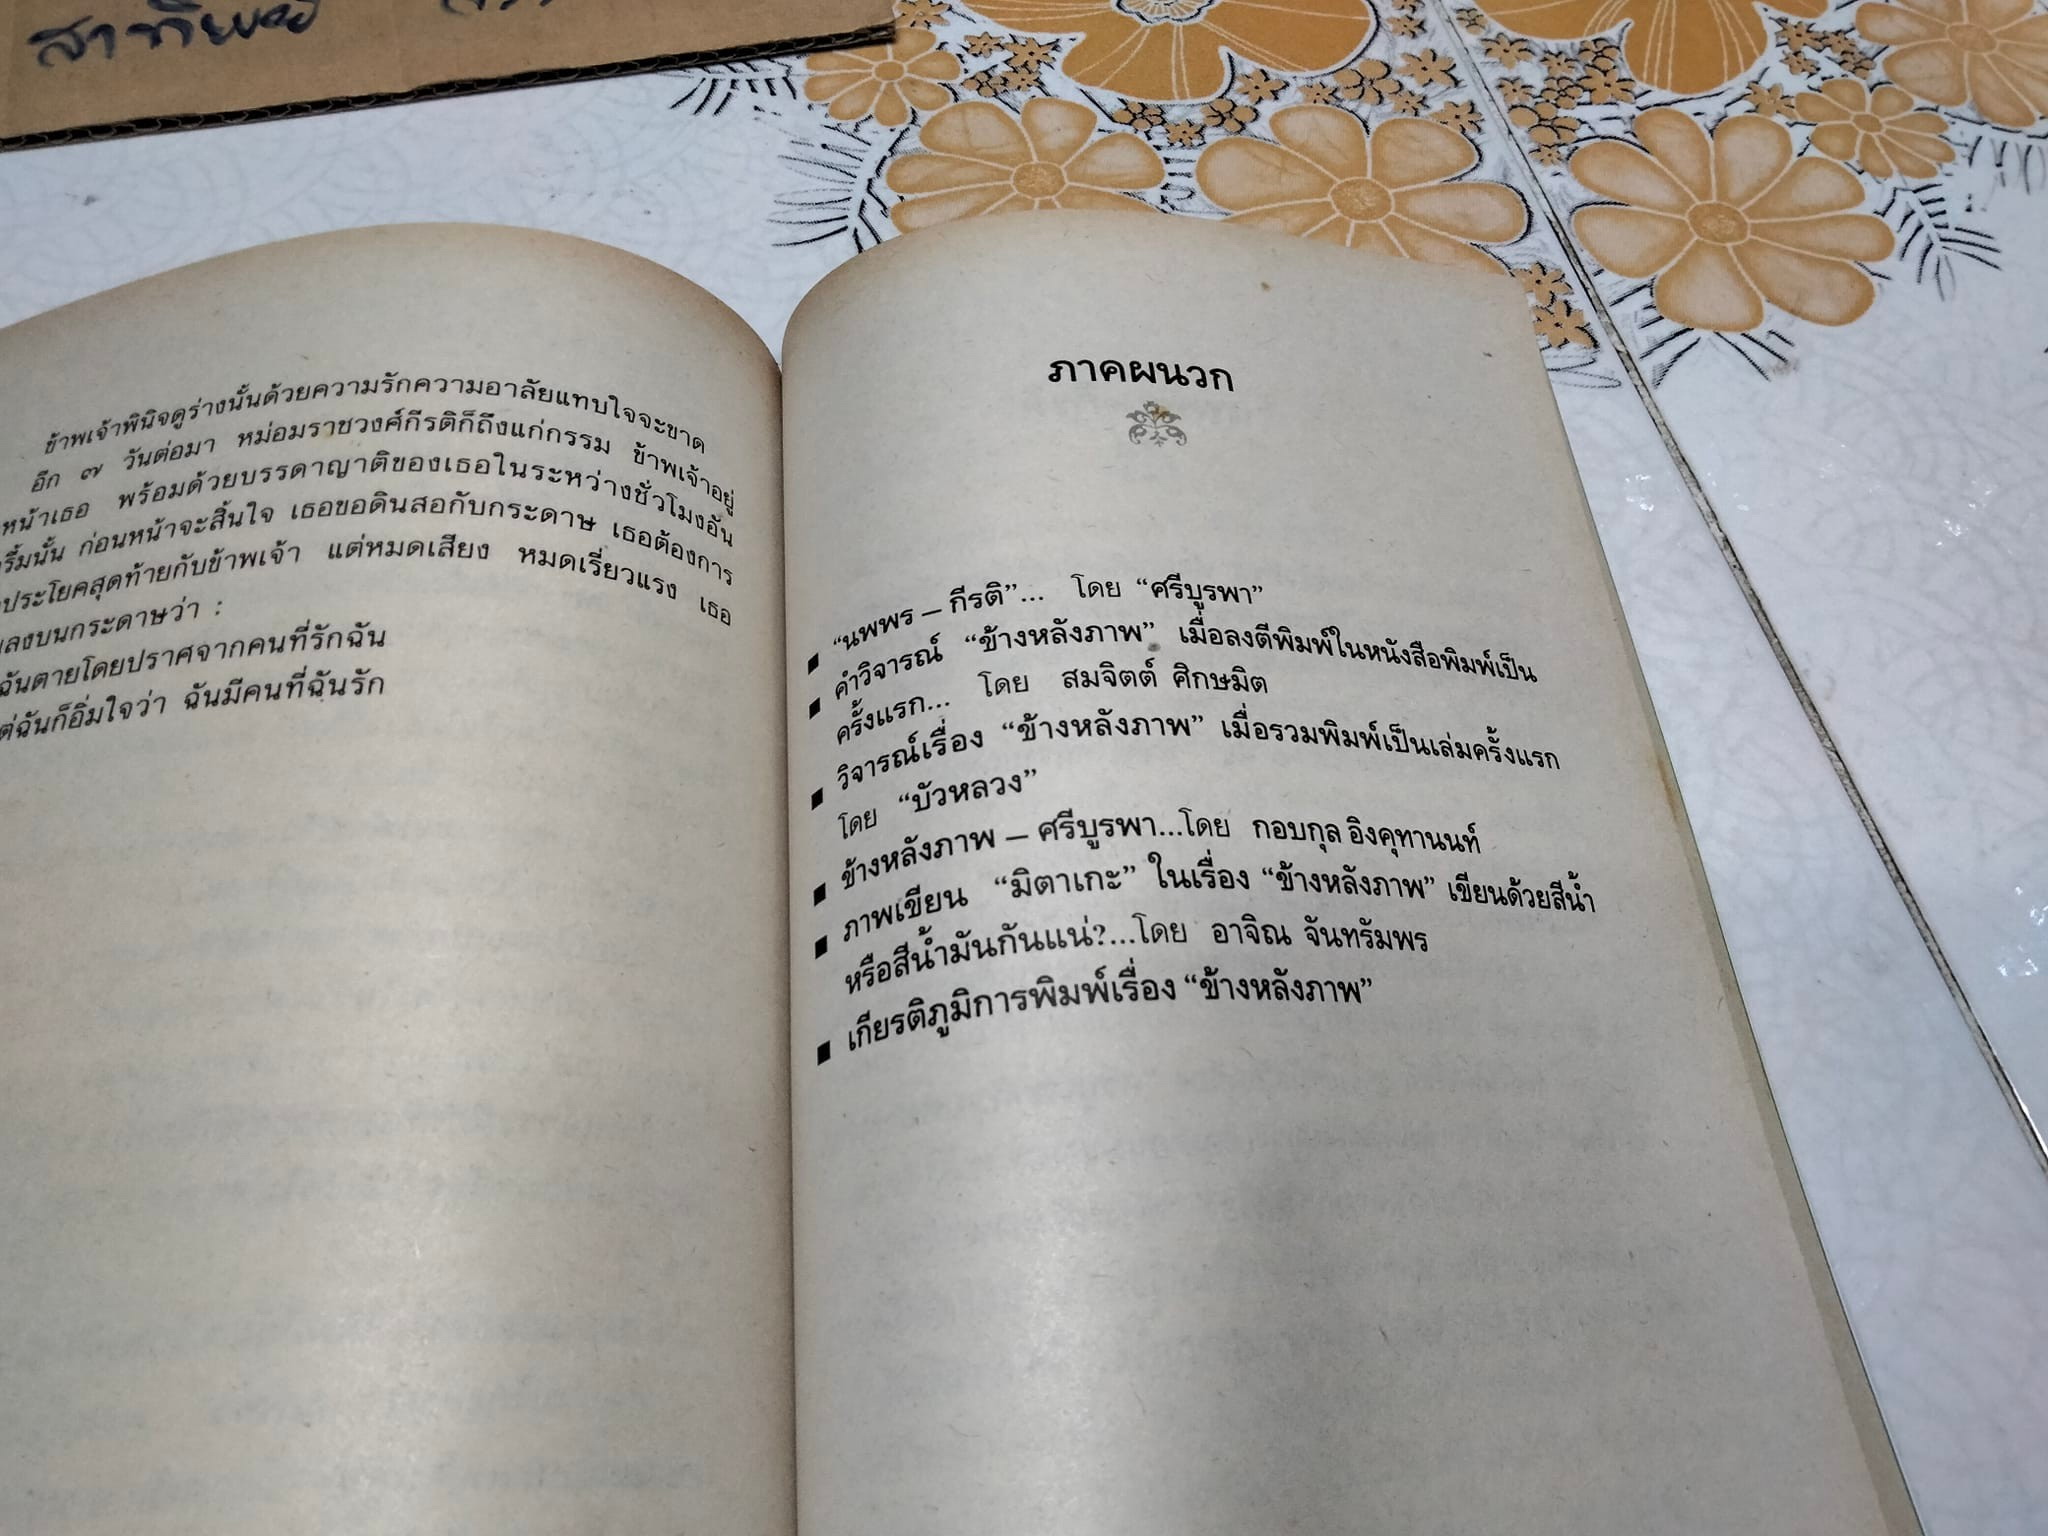 สาทิพย์
ข้าพเจ้าพินิจดูร่างนั้นด้วยความรักความอาลัยแทบใจจะขาด
อีก ๗ วันต่อมา หม่อมราชวงศ์กีรติก็ถึงแก่กรรม ข้าพเจ้าอยู่
หน้าเธอ พร้อมด้วยบรรดาญาติของเธอในระหว่างชั่วโมงอัน
รึ้มนั้น ก่อนหน้าจะสิ้นใจ เธอขอดินสอกับกระดาษ เธอต้องการ
ประโยคสุดท้ายกับข้าพเจ้า แต่หมดเสียง หมดเรี่ยวแรง เธอ
ลงบนกระดาษว่า :
ฉันตายโดยปราศจากคนที่รักฉัน
ต่ฉันก็อิ่มใจว่า ฉันมีคนที่ฉันรัก
ภาคผนวก
■ “นพพร – กีรติ”... โดย “ศรีบูรพา”
■ คำวิจารณ์ “ข้างหลังภาพ” เมื่อลงตีพิมพ์ในหนังสือพิมพ์เป็น
ครั้งแรก... โดย สมจิตต์ ศิกษมิต
■ วิจารณ์เรื่อง “ข้างหลังภาพ” เมื่อรวมพิมพ์เป็นเล่มครั้งแรก
โดย “บัวหลวง”
■ ข้างหลังภาพ – ศรีบูรพา...โดย กอบกุล อิงคุทานนท์
■ ภาพเขียน “มิตาเกะ” ในเรื่อง “ข้างหลังภาพ” เขียนด้วยสีน้ำ
หรือสีน้ำมันกันแน่?...โดย อาจิณ จันทรัมพร
■ เกียรติภูมิการพิมพ์เรื่อง “ข้างหลังภาพ”